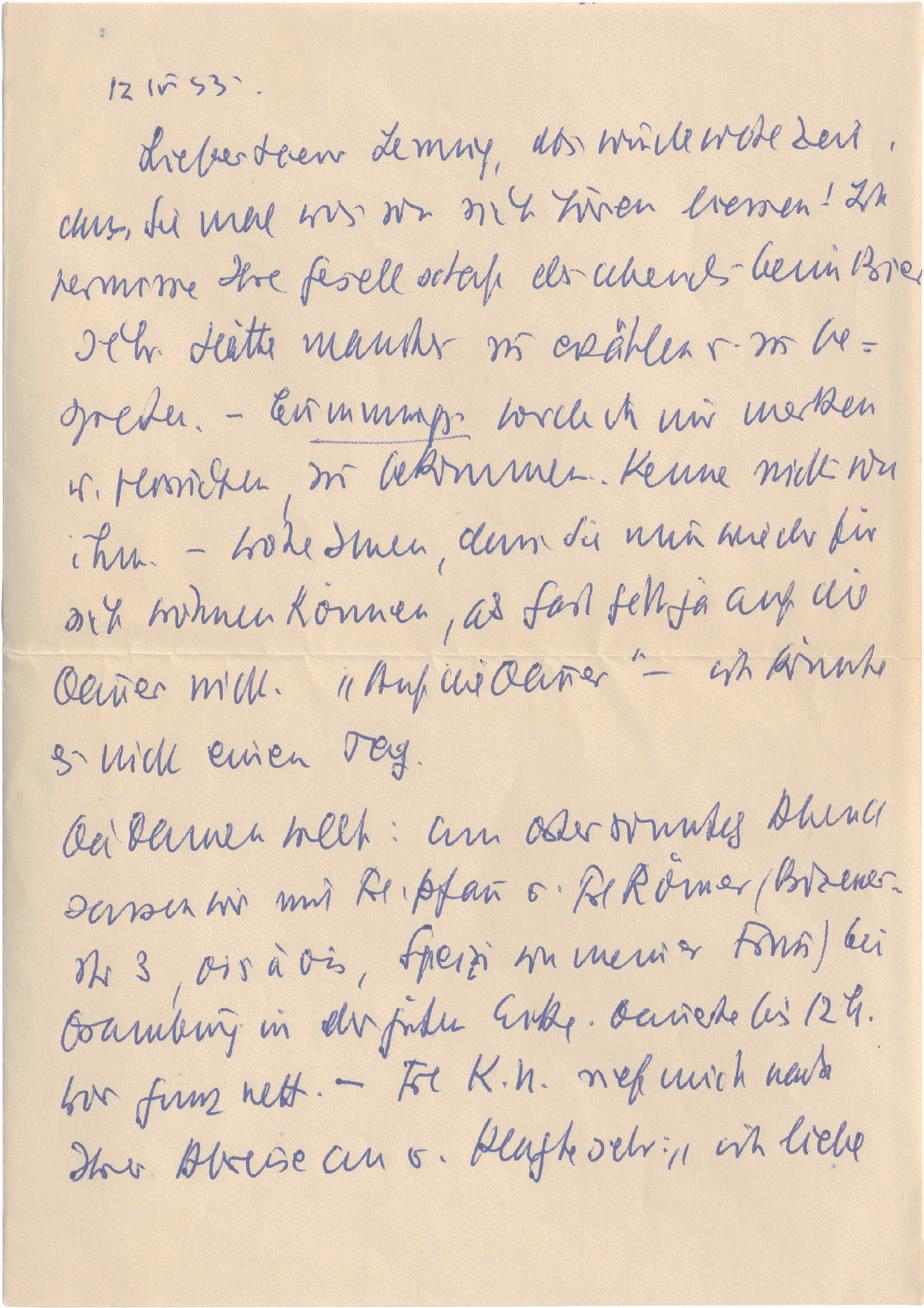 12 IV 53.
Lieber Herr Lennig, das wurde wohl Zeit,
dass Sie mal was von sich hören liessen! Ich
vermisse Ihre Gesellschaft des abends beim Bier
sehr. Hätte manches zu erzählen u. zu be=
sprechen. – Cummings werde ich mir merken
u. versuchen, zu bekommen. Kenne nichts von
ihm. – Wohl Ihnen, dass Sie nun wieder für
sich wohnen können, als Gast geht ja auf die
Dauer nicht. "Auf die Dauer" – ich könnte
es nicht einen Tag.
Die Damenwelt: am Ostersonntag Abend
sassen wir mit Frl. Pfau u. Frl Römer (Bozener-
str 3, vis à vis, Spezi von meiner Frau) bei
Dramburg in der guten Ecke. Dauerte bis 12 h.
War ganz nett. – Frl K. H. rief mich nach
Ihrer Abreise an u. klagte sehr: „ich liebe